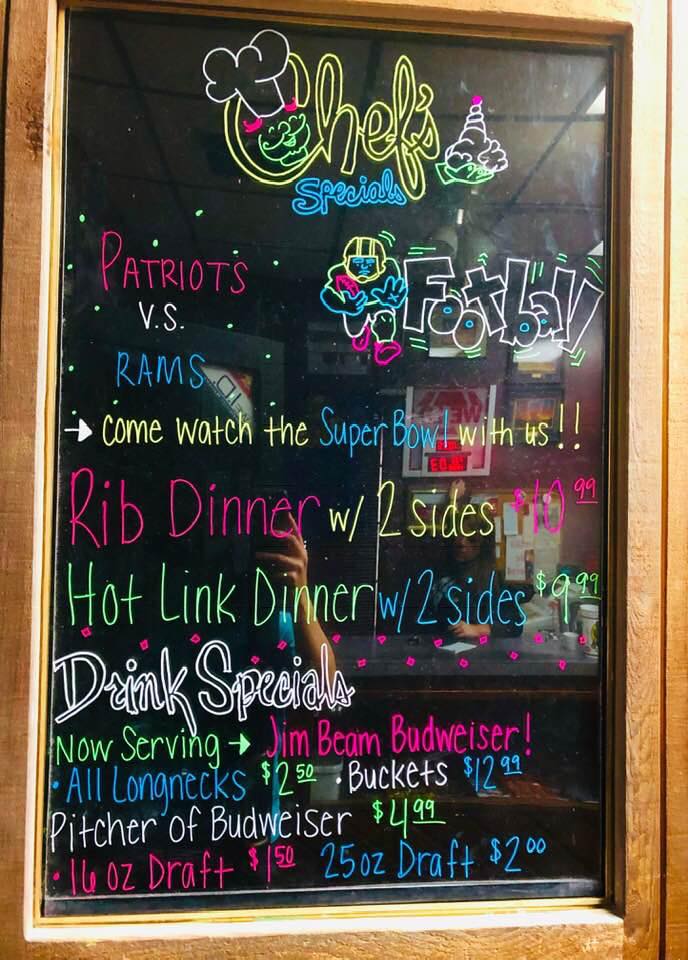 Chef's
Specials
PATRIOTS
V.S.
RAMS
Football
→ come watch the Super Bowl with us!!
Rib Dinner w/ 2 sides $10.99
Hot Link Dinner w/ 2 sides $9.99
Drink Specials
Now Serving → Jim Beam Budweiser!
· All Longnecks $2.50 · Buckets $12.99
Pitcher of Budweiser $4.99
· 16 oz Draft $1.50 25oz Draft $2.00